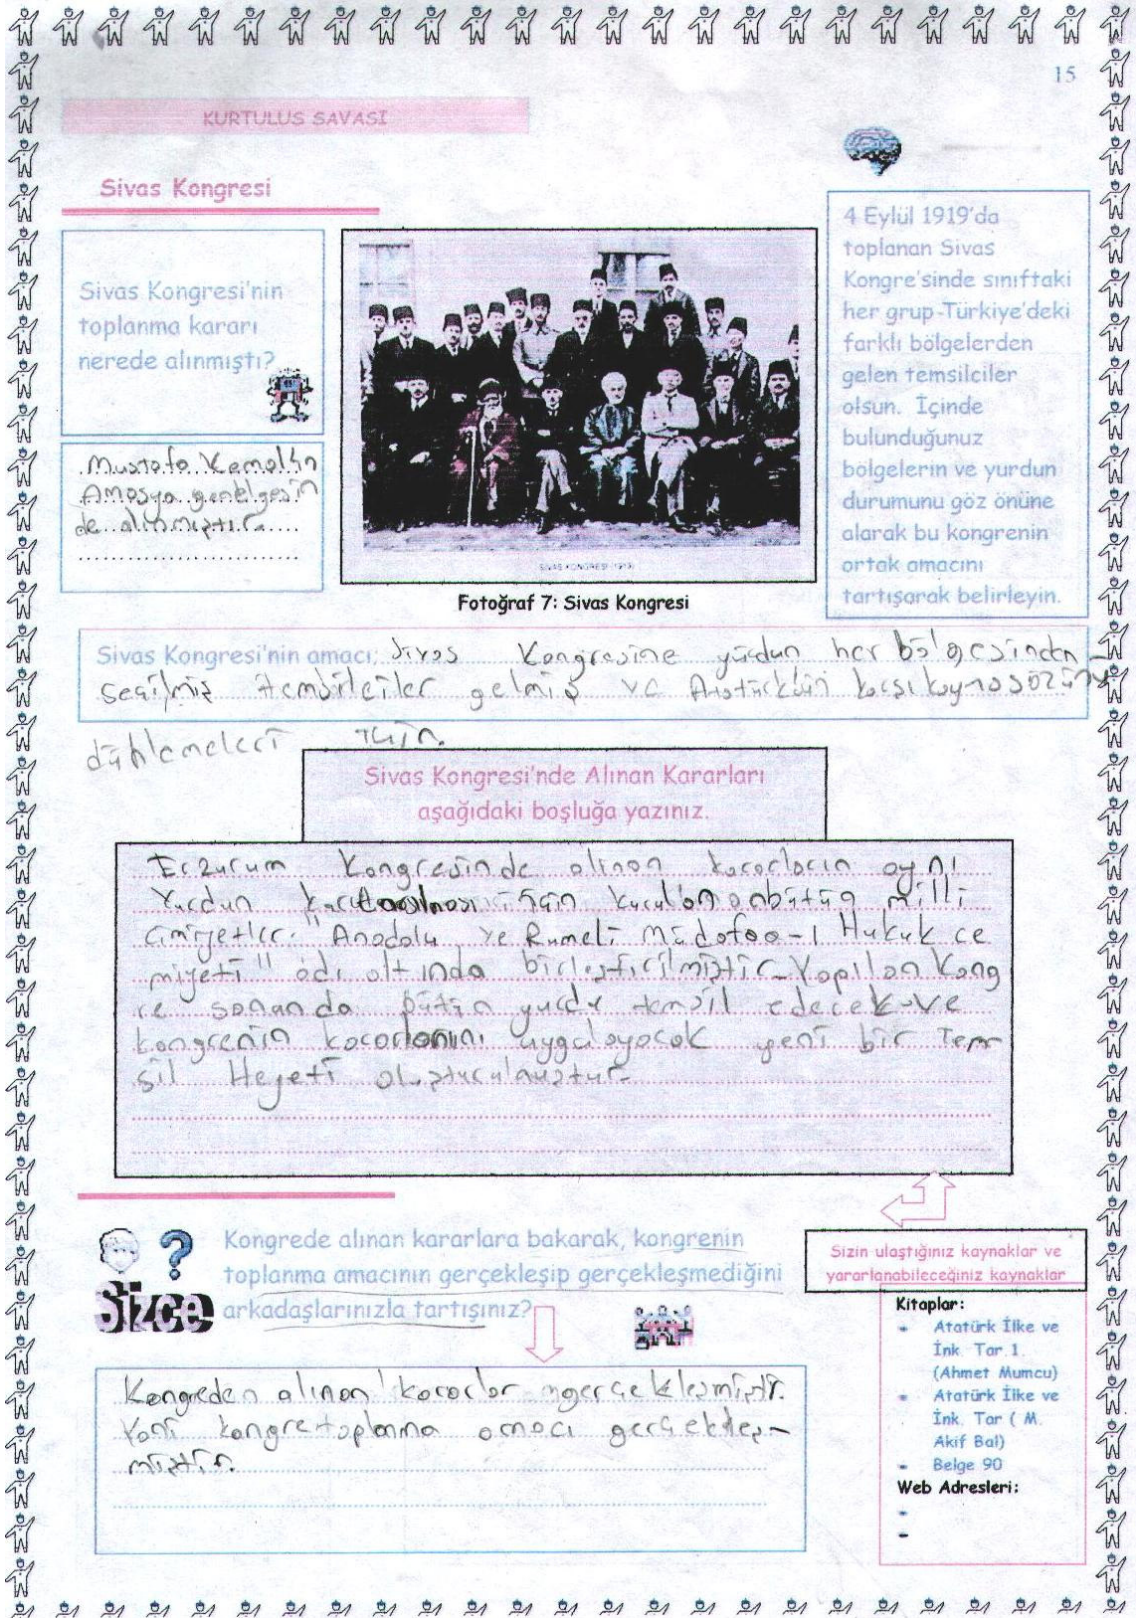 15
KURTULUS SAVASI
Sivas Kongresi
Sivas Kongresi'nin
toplanma kararı
nerede alınmıştı?
Mustafa Kemal'in
Amasya genelgesin
de alınmıştır.
SIVAS KONGRESI (1919)
Fotoğraf 7: Sivas Kongresi
4 Eylül 1919'da
toplanan Sivas
Kongre'sinde sınıftaki
her grup-Türkiye'deki
farklı bölgelerden
gelen temsilciler
olsun. İçinde
bulunduğunuz
bölgelerin ve yurdun
durumunu göz önüne
alarak bu kongrenin
ortak amacını
tartışarak belirleyin.
Sivas Kongresi'nin amacı: Sivas Kongresine yurdun her bölgesinden
seçilmiş temsilciler gelmiş ve Atatürk'ün
için.
Sivas Kongresi'nde Alınan Kararları
aşağıdaki boşluğa yazınız.
Erzurum Kongresinde alınan kararların aynı
Yurdun için bütün milli
"Anadolu ve Rumeli Müdafaa-ı Hukuk ce
miyeti" adı altında birleştirilmiştir. Yapılan Kong
re sonanda bütün yurdu temsil edecek ve
kongrenin kararlarını uygulayacak yeni bir Tem
sil Heyeti oluşturulmuştur.
Sizce
? Kongrede alınan kararlara bakarak, kongrenin
toplanma amacının gerçekleşip gerçekleşmediğini
arkadaşlarınızla tartışınız?
Kongreden alınan kararlar gerçekleşmiştir.
Yani kongre toplanma amacı gerçekleş-
miştir.
Sizin ulaştığınız kaynaklar ve
yararlanabileceğiniz kaynaklar
Kitaplar:
Atatürk İlke ve
İnk. Tar.1.
(Ahmet Mumcu)
Atatürk İlke ve
İnk. Tar ( M.
Akif Bal)
Belge 90
Web Adresleri: